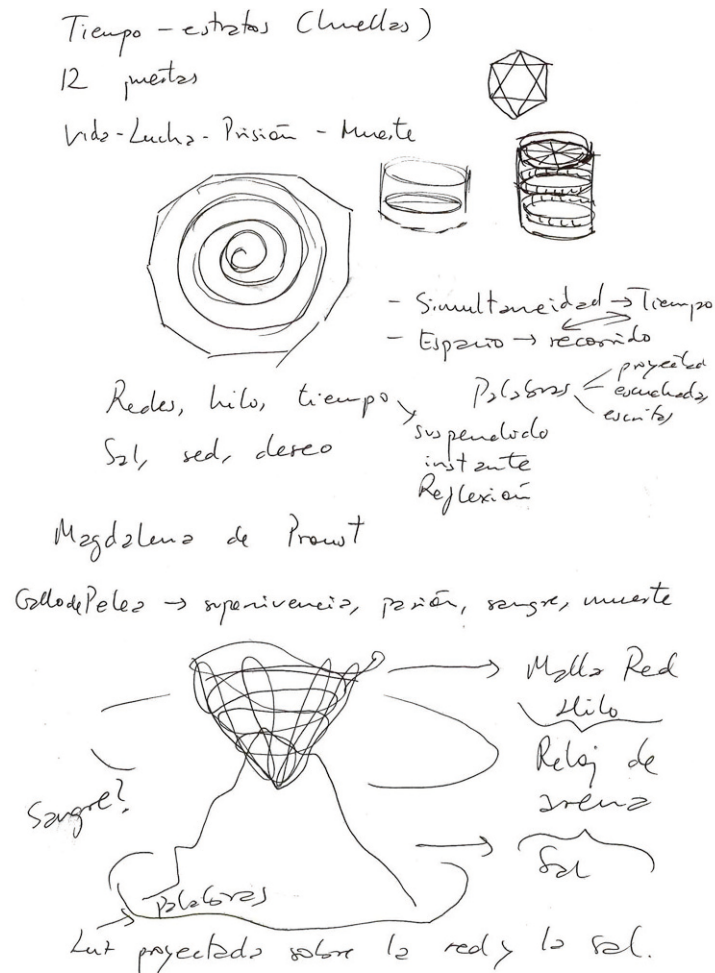 Tiempo - estratos (huellas)
12 puertas
Vida - Lucha - Prisión - Muerte
- Simultaneidad → Tiempo
- Espacio → recorrido
Redes, hilo, tiempo
Sal, sed, deseo
suspendido
instante
Reflexión
Palabras
proyectadas
escuchadas,
escritas
Magdalena de Proust
Gallo de Pelea → supervivencia, pasión, sangre, muerte
Malla Red
Hilo
Reloj de
arena
Sal
Sangre?
palabras
Luz proyectada sobre la red y la sal.